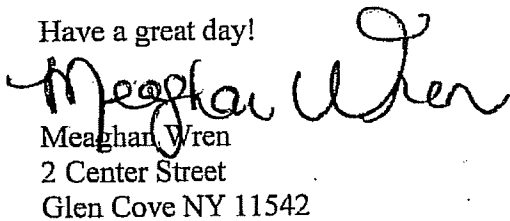 Have a great day!
Meaghan Wren
Meaghan Wren
2 Center Street
Glen Cove NY 11542